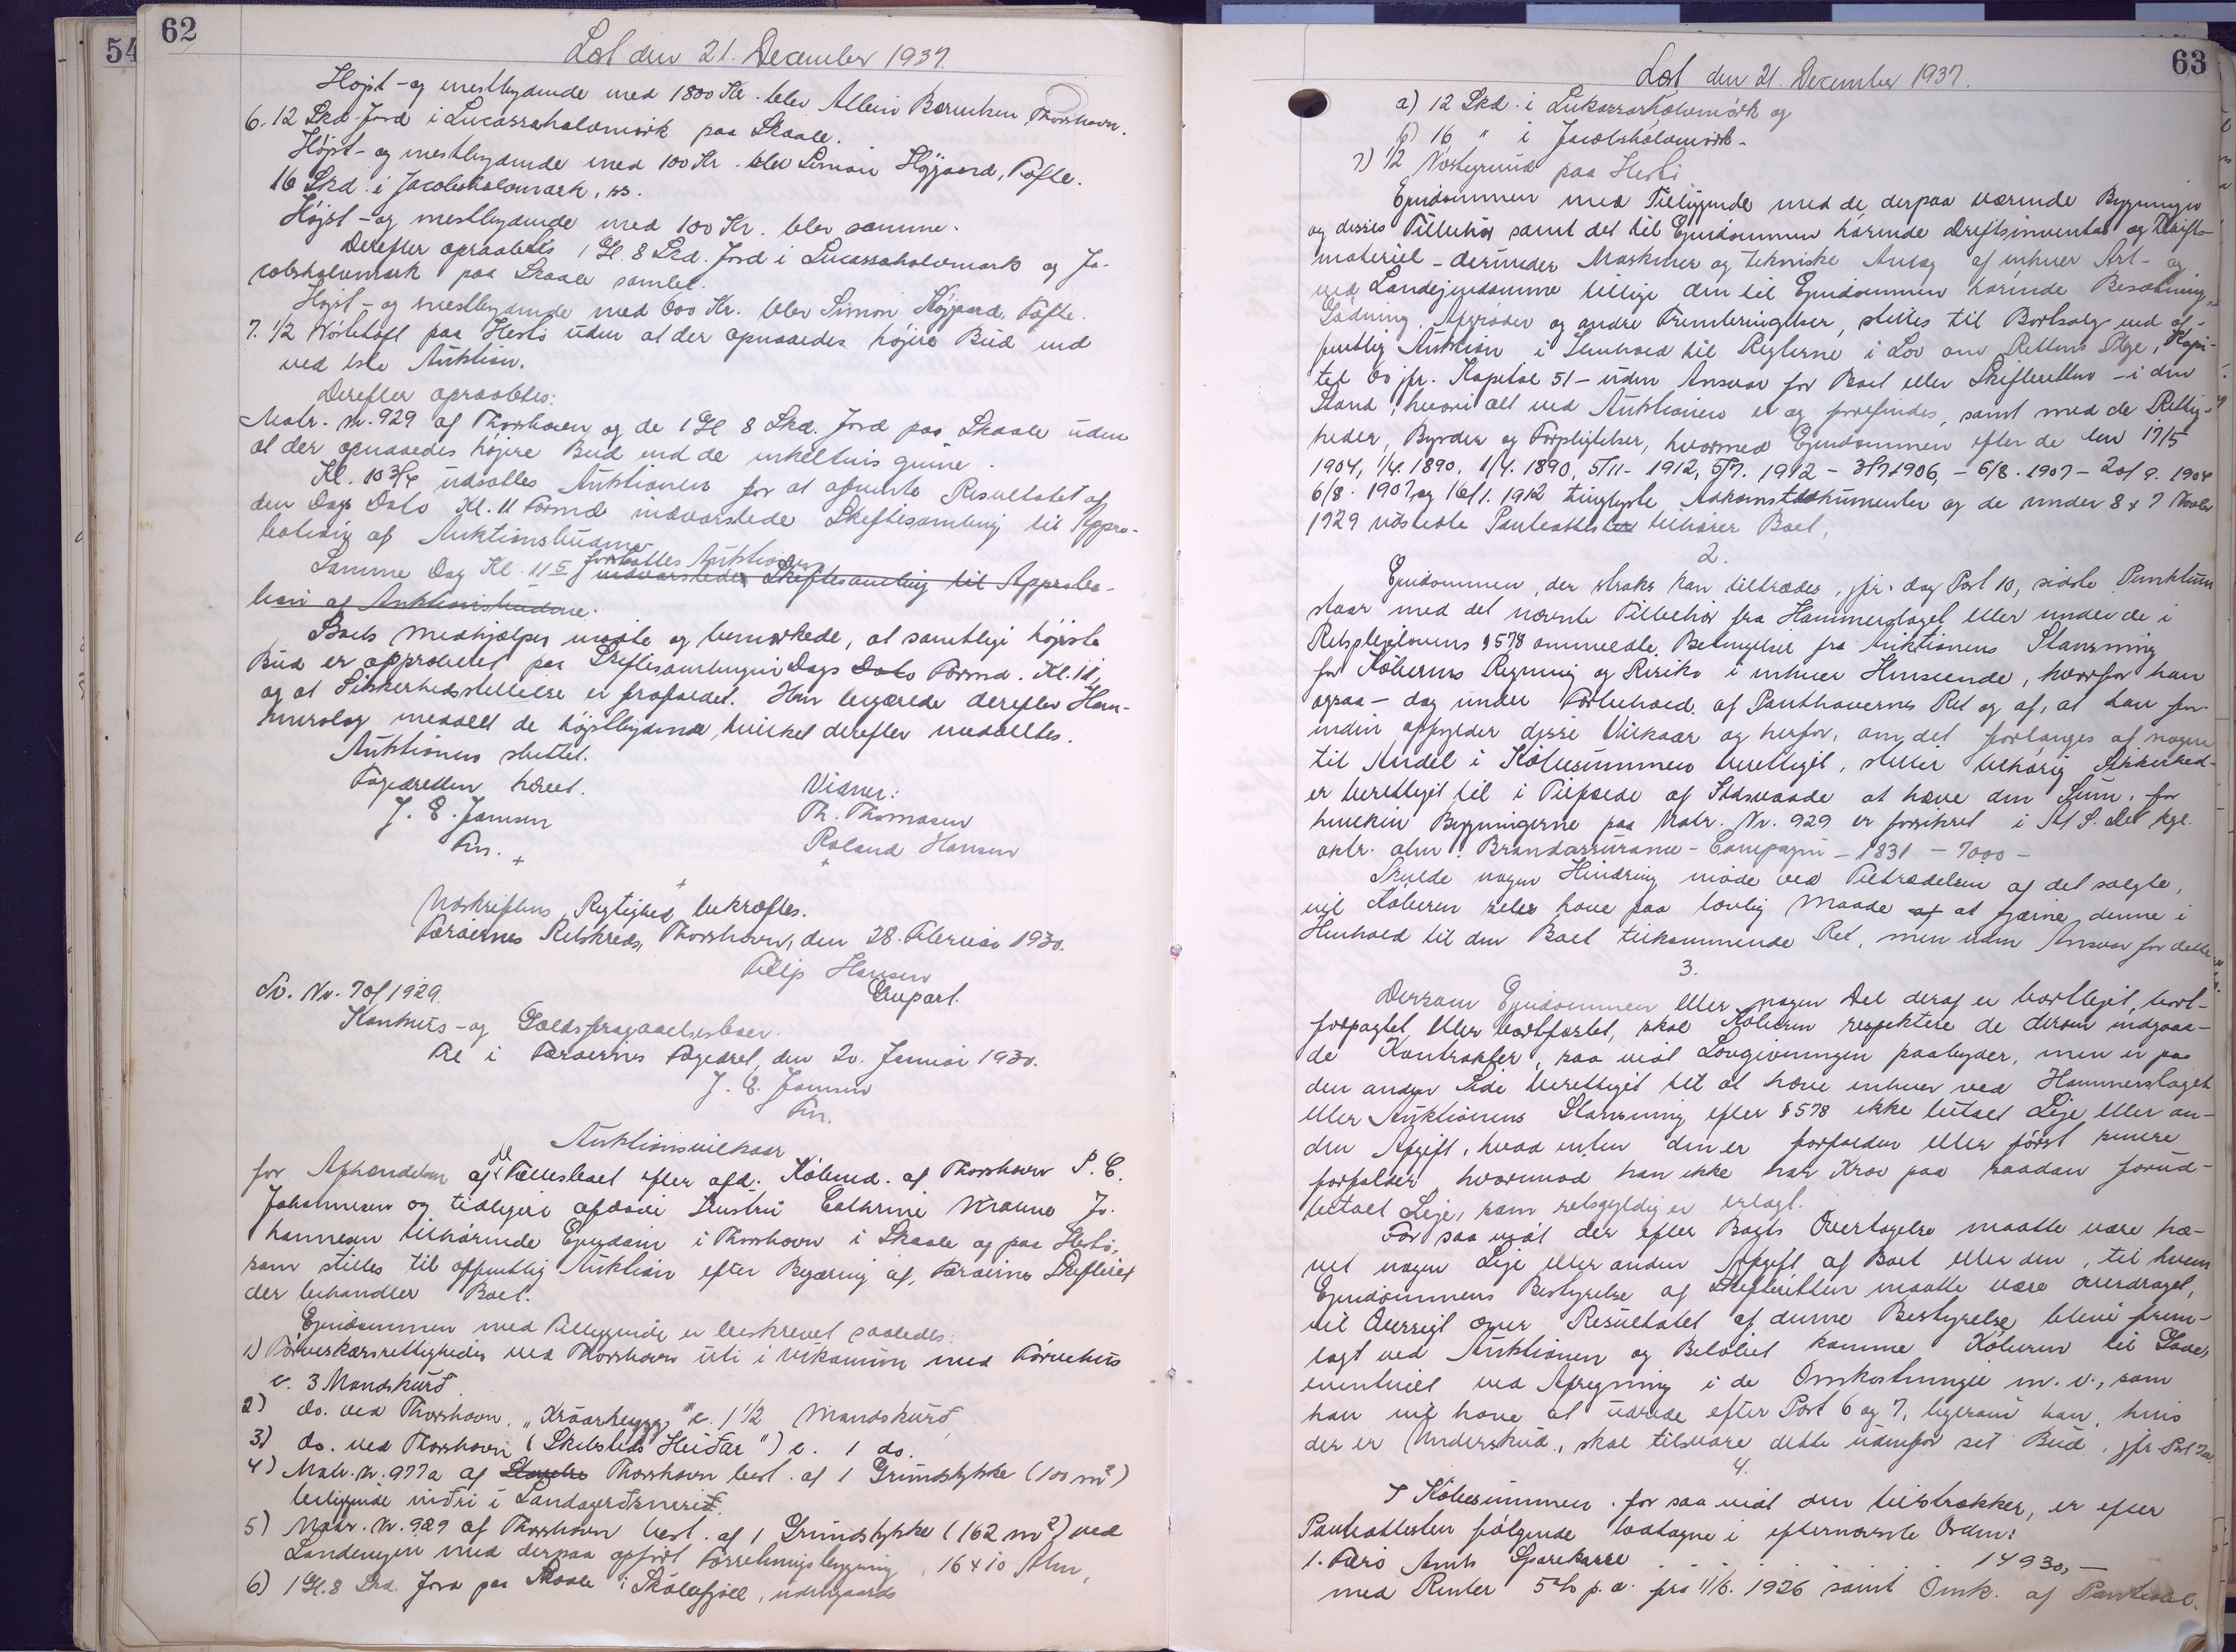 62
54
Læst den 21. December 1937.
Højst- og mestbydende med 1800 Kr. blev Thorshavn.
6. 12 Skd. Jord i Lucassahalvmørk paa Skaale.
Højst- og mestbydende med 100 Kr. blev Simon Højgaard, Tofte.
16 Skd. i Jacobshalvmark, ss.
Højst- og mestbydende med 100 Kr. blev samme.
Derefter opraabtes 1 Gl. 8 Skd. Jord i Lucassahalvmark og Ja-
cobshalvmark paa Skaale samlet.
Højst- og mestbydende med 600 Kr. blev Simon Højgaard, Tofte.
7. 1/2 paa Hestø uden at der opnaaedes højere Bud end
ved 1ste Auktion.
Derefter opraabtes:
Matr. Nr. 929 af Thorshavn og de 1 Gl 8 Skd. Jord paa Skaale uden
at der opnaaedes højere Bud end de enkeltvis givne.
Kl. 10 3/4 udsattes Auktionen for at afvente Resultatet af
den Dags Dato Kl. 11 Formd indvarslede Skiftesamling til Appro-
bation af Auktionsbudene
Samme Dag Kl. 11 5 fortsattes Auktionen
indvarslede Skiftesamling til Approba-
tion af Auktionsbudene.
Boets Medhjælper mødte og bemærkede, at samtlige højeste
Bud er approberet paa Skiftesamlingen Dags Dato Formd. Kl. 11,
og at Sikkerhedsstillelse er frafaldet. Han begærede derefter Ham-
merslag meddelt de højstbydende, hvilket derefter meddeltes.
Auktionen sluttet.
Fogedretten hævet.
Vidner:
J. E. Jensen
Th. Thomasen
Fm.
Roland Hansen
Udskriftens Rigtighed bekræftes.
Færøernes Retskreds, Thorshavn, den 28. Februar 1930.
Filip Hansen
Gupart.
Sv. Nr. 70/1929.
Konkurs- og Gældsfragaaelsesboer.
Fre i Færøernes Fogedret, den 20. Januar 1930.
J. E. Jensen
Fm.
Auktionsvilkaar
for Afhændelsen af Fællesboet efter afd. Købmd. af Thorshavn P. C.
Johannesen og tidligere afdøde Hustru Cathrine Jo-
hannesen tilhørende Ejendom i Thorshavn i Skaale og paa Hestø,
som stilles til offentlig Auktion efter Begæring af, Færøernes Skifteret
der behandler Boet.
Ejendommen med Tilliggende er beskrevet saaledes:
1) Tørveskærsrettigheder ved Thorshavn uti i med Tørvehus
c. 3 Mandskurd
2) do. ved Thorshavn, c. 1 1/2 Mandskurd,
3) do. ved Thorshavn c. 1 do.
4) Matr. Nr. 977a af Thorshavn best. af 1 Grundstykke (100 m²)
beliggende
5) Matr. Nr. 929 af Thorshavn best. af 1 Grundstykke (162 m²) ved
Landevejen med derpaa opført Forretningsbygning, 16 x 10 Alen,
6) 1 Gl. 8 Skd. Jord paa Skaale i Skálafjall, udengaards
63
Læst den 21. December 1937.
a) 12 Skd. i Lukassarhalvmørk og
b) 16 " i Jacobshalvmørk.
7) 1/2 paa Hestø
Ejendommen med Tilliggende med de derpaa værende Bygninger
og disses Tilbehør samt det til Ejendommen hørende Driftsinventar og Drifts-
materiel - derunder Maskiner og tekniske Anlæg af enhver Art - og
ved Landejendomme tillige den til Ejendommen hørende Besætning,
Gødning, Afgrøder og andre Frembringelser, stilles til Bortsalg ved of-
fentlig Auktion i Henhold til Reglerne i Lov om Rettens Pleje, Kapi-
tel 60 jfr. Kapitel 51 - uden Ansvar for Boet eller Skifteretten - i den
Stand, hvori alt ved Auktionen er og forefindes, samt med de Rettig-
heder, Byrder og Forpligtelser, hvormed Ejendommen efter de den 19/5
1904, 1/4. 1890, 1/4. 1890, 5/11- 1912, 5/7. 1912 - 3/7 1906, - 6/8. 1907 - 20/9. 1904
6/8. 1907, og 16/1. 1912 tinglyste Adkomstdokumenter og de under 8 & 7 Novbr
1929 udstedte Panteattester tilhører Boet.
2.
Ejendommen, der straks kan tiltrædes, jfr. dog Post 10, sidste Punktum
staar med det nævnte Tilbehør fra Hammerslaget eller under de i
Retsplejelovens § 578 ommeldte Betingelser fra Auktionens Slutning
for Køberens Regning og Risiko i enhver Henseende, hvorfor han
ogsaa - dog under Forbehold af Panthavernes Ret og af, at han for-
inden opfylder disse Vilkaar og herfor, om det forlanges af nogen
til Andel i Købesummen berettiget, stiller behørig Sikkerhed -
er berettiget til i Tilfælde af Ildsvaade at hæve den Sum, for
hvilken Bygningerne paa Matr. Nr. 929 er forsikret i A/S. Det kgl.
oktr. alm. Brandassurance-Compagni - 1831 - 7000 -
Skulde nogen Hindring møde ved Tiltrædelsen af det solgte,
vil Køberen selv have paa lovlig Maade at fjerne denne i
Henhold til den Boet tilkommende Ret, men uden Ansvar for dette.
3.
Dersom Ejendommen eller nogen Del deraf er bortlejet, bort-
forpagtet, eller bortfæstet, skal Køberen respektere de derom indgaae-
de Kontrakter, saa vidt Lovgivningen paabyder, men er paa
den anden Side berettiget til at hæve enhver ved Hammerslaget
eller Auktionens Slutning efter § 578 ikke betalt Leje eller an-
den Afgift, hvad enten den er forfalden eller først senere
forfalder, hvorimod han ikke har Krav paa saadan forud-
betalt Leje, som retsgyldig er erlagt.
For saa vidt der efter Boets Overtagelse maatte være hæ-
vet nogen Leje eller anden Afgift af Boet eller den, til hvem
Ejendommens Bestyrelse af Skifteretten maatte være overdraget,
vil Oversigt over Resultatet af denne Bestyrelse blive frem-
lagt ved Auktionen og Beløbet komme Køberen til Gode,
eventuelt ved Afregning i de Omkostninger m.v., som
han vil have at udrede efter Post 6 og 7, ligesom han, hvis
der er Underskud, skal tilsvare dette udenfor sit Bud, jfr. Post 7a.
4.
I Købesummen, for saa vidt den tilstrækker, er efter
Panteattesten følgende i efternævnte Orden:
1. Færø Amts Sparekasse . . . . . . 14930,-
med Renter 5% p.a. fra 11/6. 1926 samt Omk. af